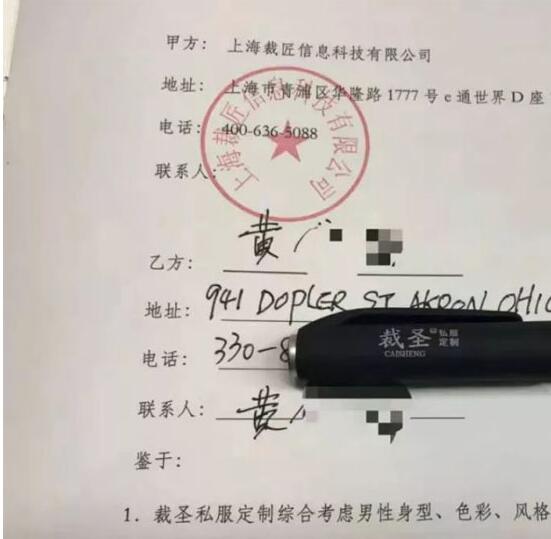 甲方： 上海裁匠信息科技有限公司
地址： 上海市青浦区华隆路 1777 号 e 通世界 D 座
电话： 400-636-5088
联系人：
上海裁匠信息科技有限公司
乙方： 黄
地址： 941 DOPLER ST AKRON OHIO
电话： 330-8
裁圣 私服定制
CAISHENG
联系人： 黄
鉴于：
1. 裁圣私服定制综合考虑男性身型、色彩、风格